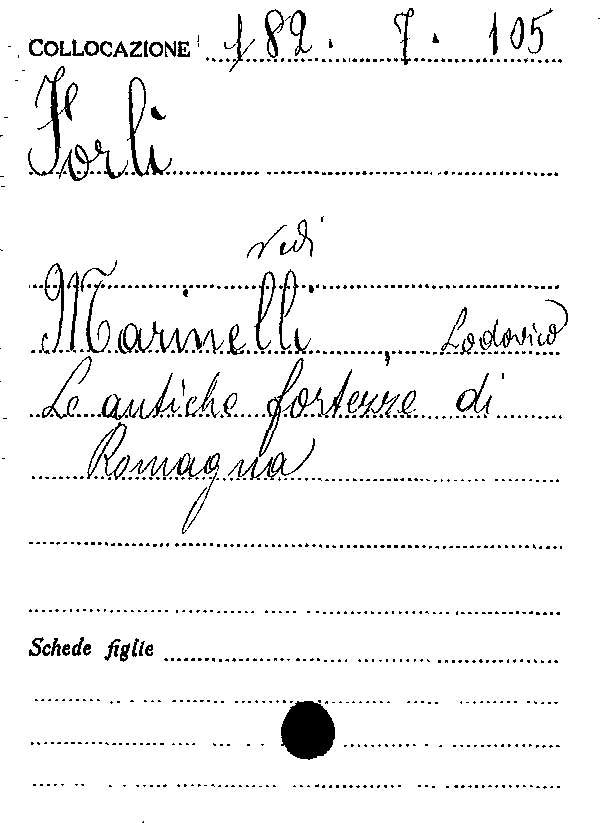 COLLOCAZIONE 182. 7. 105
Forlì
vedi
Marinelli, Lodovico
Le antiche fortezze di
Romagna
Schede figlie